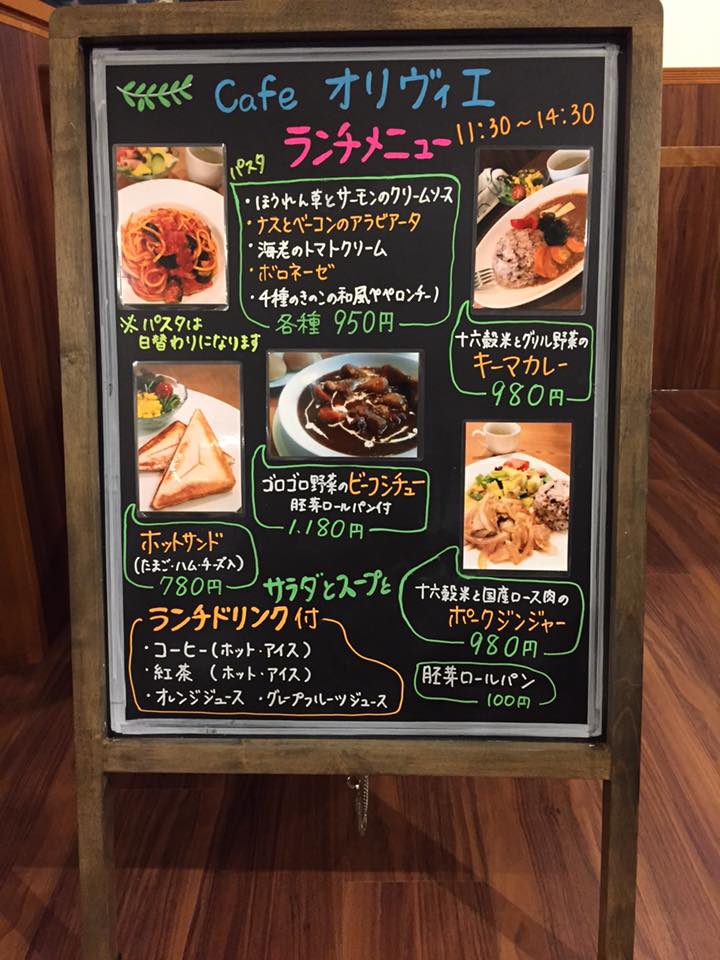 Cafe オリヴィエ
ランチメニュー 11:30～14:30
パスタ
・ほうれん草とサーモンのクリームソース
・ナスとベーコンのアラビアータ
・海老のトマトクリーム
・ボロネーゼ
・4種のきのこの和風ペペロンチーノ
各種 950円
※パスタは
日替わりになります
十六穀米とグリル野菜の
キーマカレー
980円
ゴロゴロ野菜のビーフシチュー
胚芽ロールパン付
1.180円
ホットサンド
(たまご・ハム・チーズ入)
780円
十六穀米と国産ロース肉の
ポークジンジャー
980円
サラダとスープと
ランチドリンク付
・コーヒー(ホット・アイス)
・紅茶 (ホット・アイス)
・オレンジジュース ・グレープフルーツジュース
胚芽ロールパン
100円